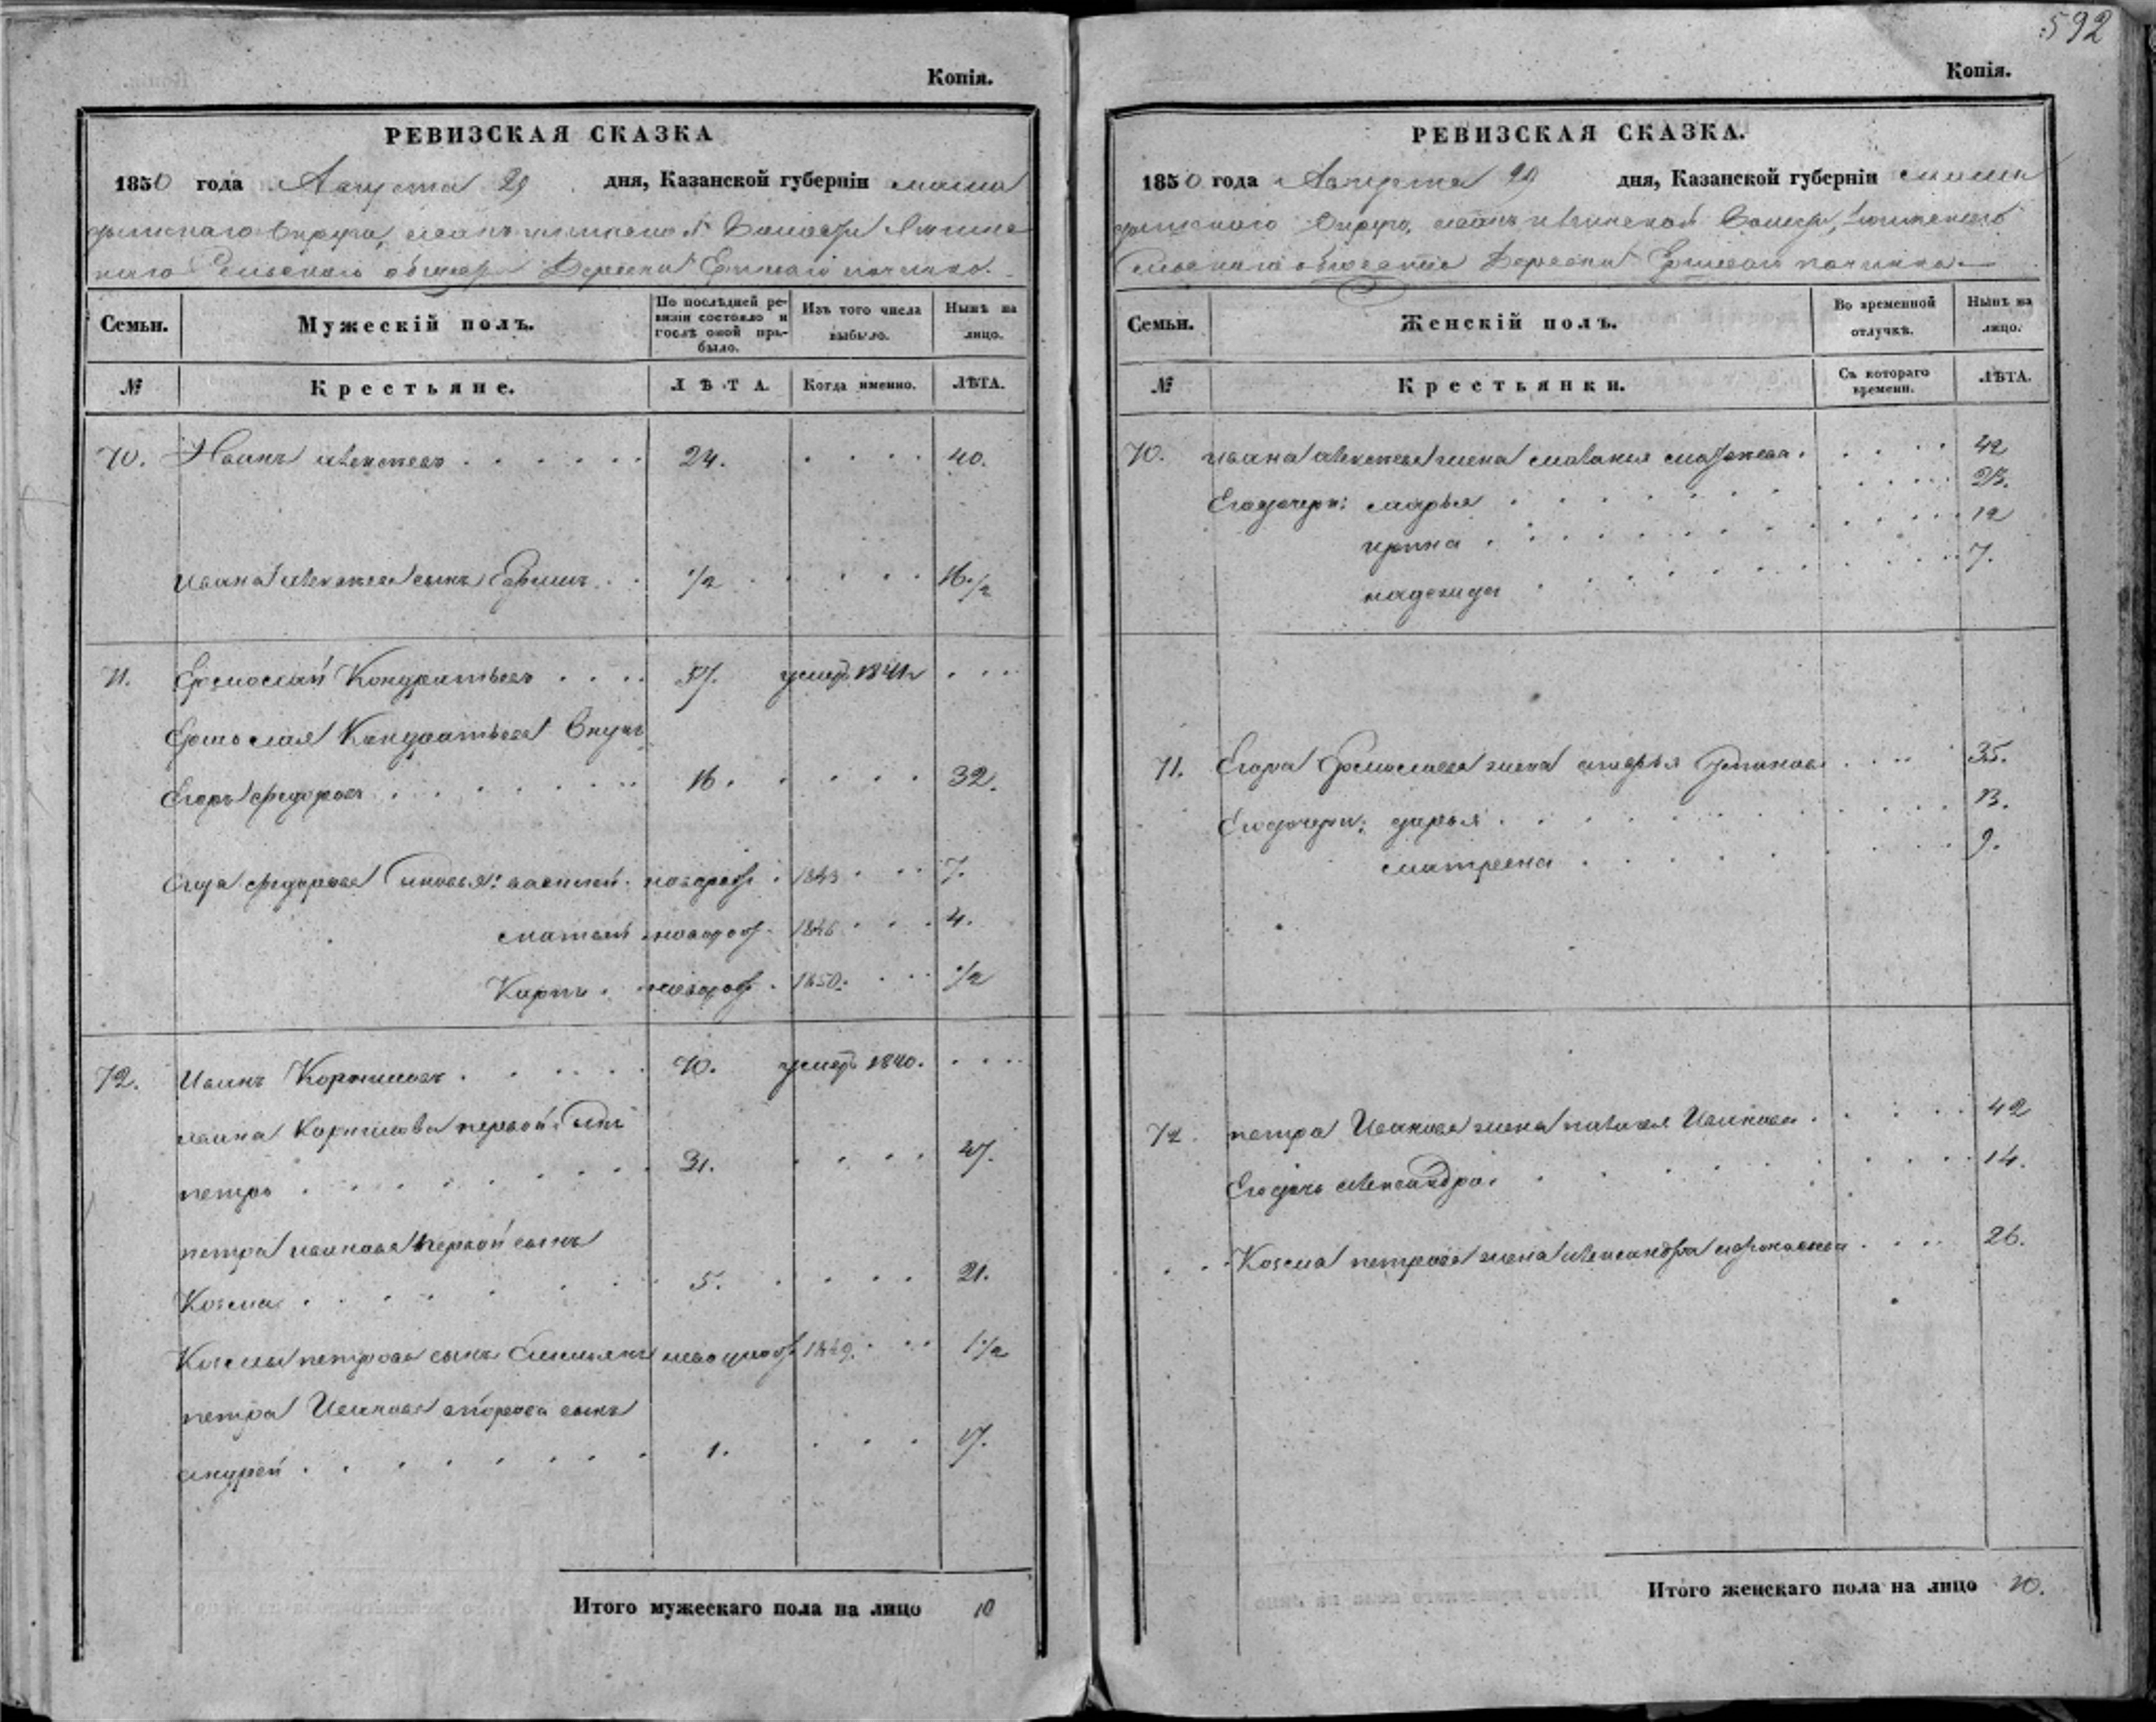 592
Копія.
РЕВИЗСКАЯ СКАЗКА
1850 года Августа 29 дня, Казанской губерніи мама
дышскаго Округа, Волости
наго Сельскаго общест Деревни починка.
Семьи.
Мужескій полъ.
По послѣдней ревизіи состояло и послѣ оной прибыло.
Изъ того числа выбыло.
Нынѣ на лицо.
№
Крестьяне.
ЛѢТА.
Когда именно.
ЛѢТА.
70. Иванъ Алексѣевъ 24. 40.
Ивана Алексѣева сынъ 1/2 16 1/2
71. Ермолай Кондратьевъ 57. умеръ 1841
Ермолая Кондратьева Внукъ
Егоръ Федоровъ 16. 32.
Егора Федорова Сыновья: василей новорож 1843 7.
матвей новорож 1846 4.
Карпъ новорож 1850. 1/2
72. Иванъ Корниловъ 70. умеръ 1840.
ивана Корнилова первой Сынъ
петръ 31. 47.
петра иванова первой сынъ
Козма 5. 21.
Козмы петрова сынъ новорож 1849. 1 1/2
петра Иванова второва сынъ
андрей 1. 17.
Итого мужескаго пола на лицо 10
Копія.
РЕВИЗСКАЯ СКАЗКА.
1850 года Августа 29 дня, Казанской губерніи мама
дышскаго Округа, Волости,
Сельскаго общества Деревни починка.
Семьи.
Женскій полъ.
Во временной отлучкѣ.
Нынѣ на лицо.
№
Крестьянки.
Съ котораго времени.
ЛѢТА.
70. ивана Алексѣева жена маланья матвеева 42
Его дочери: марья 23.
ирина 12
надежда 7.
71. Егора жена марья 35.
Его дочери: дарья 13.
матрена 9.
72. петра Иванова жена Иванова 42
Его дочь Александра 14.
Козма петрова жена Александра 26.
Итого женскаго пола на лицо 10.